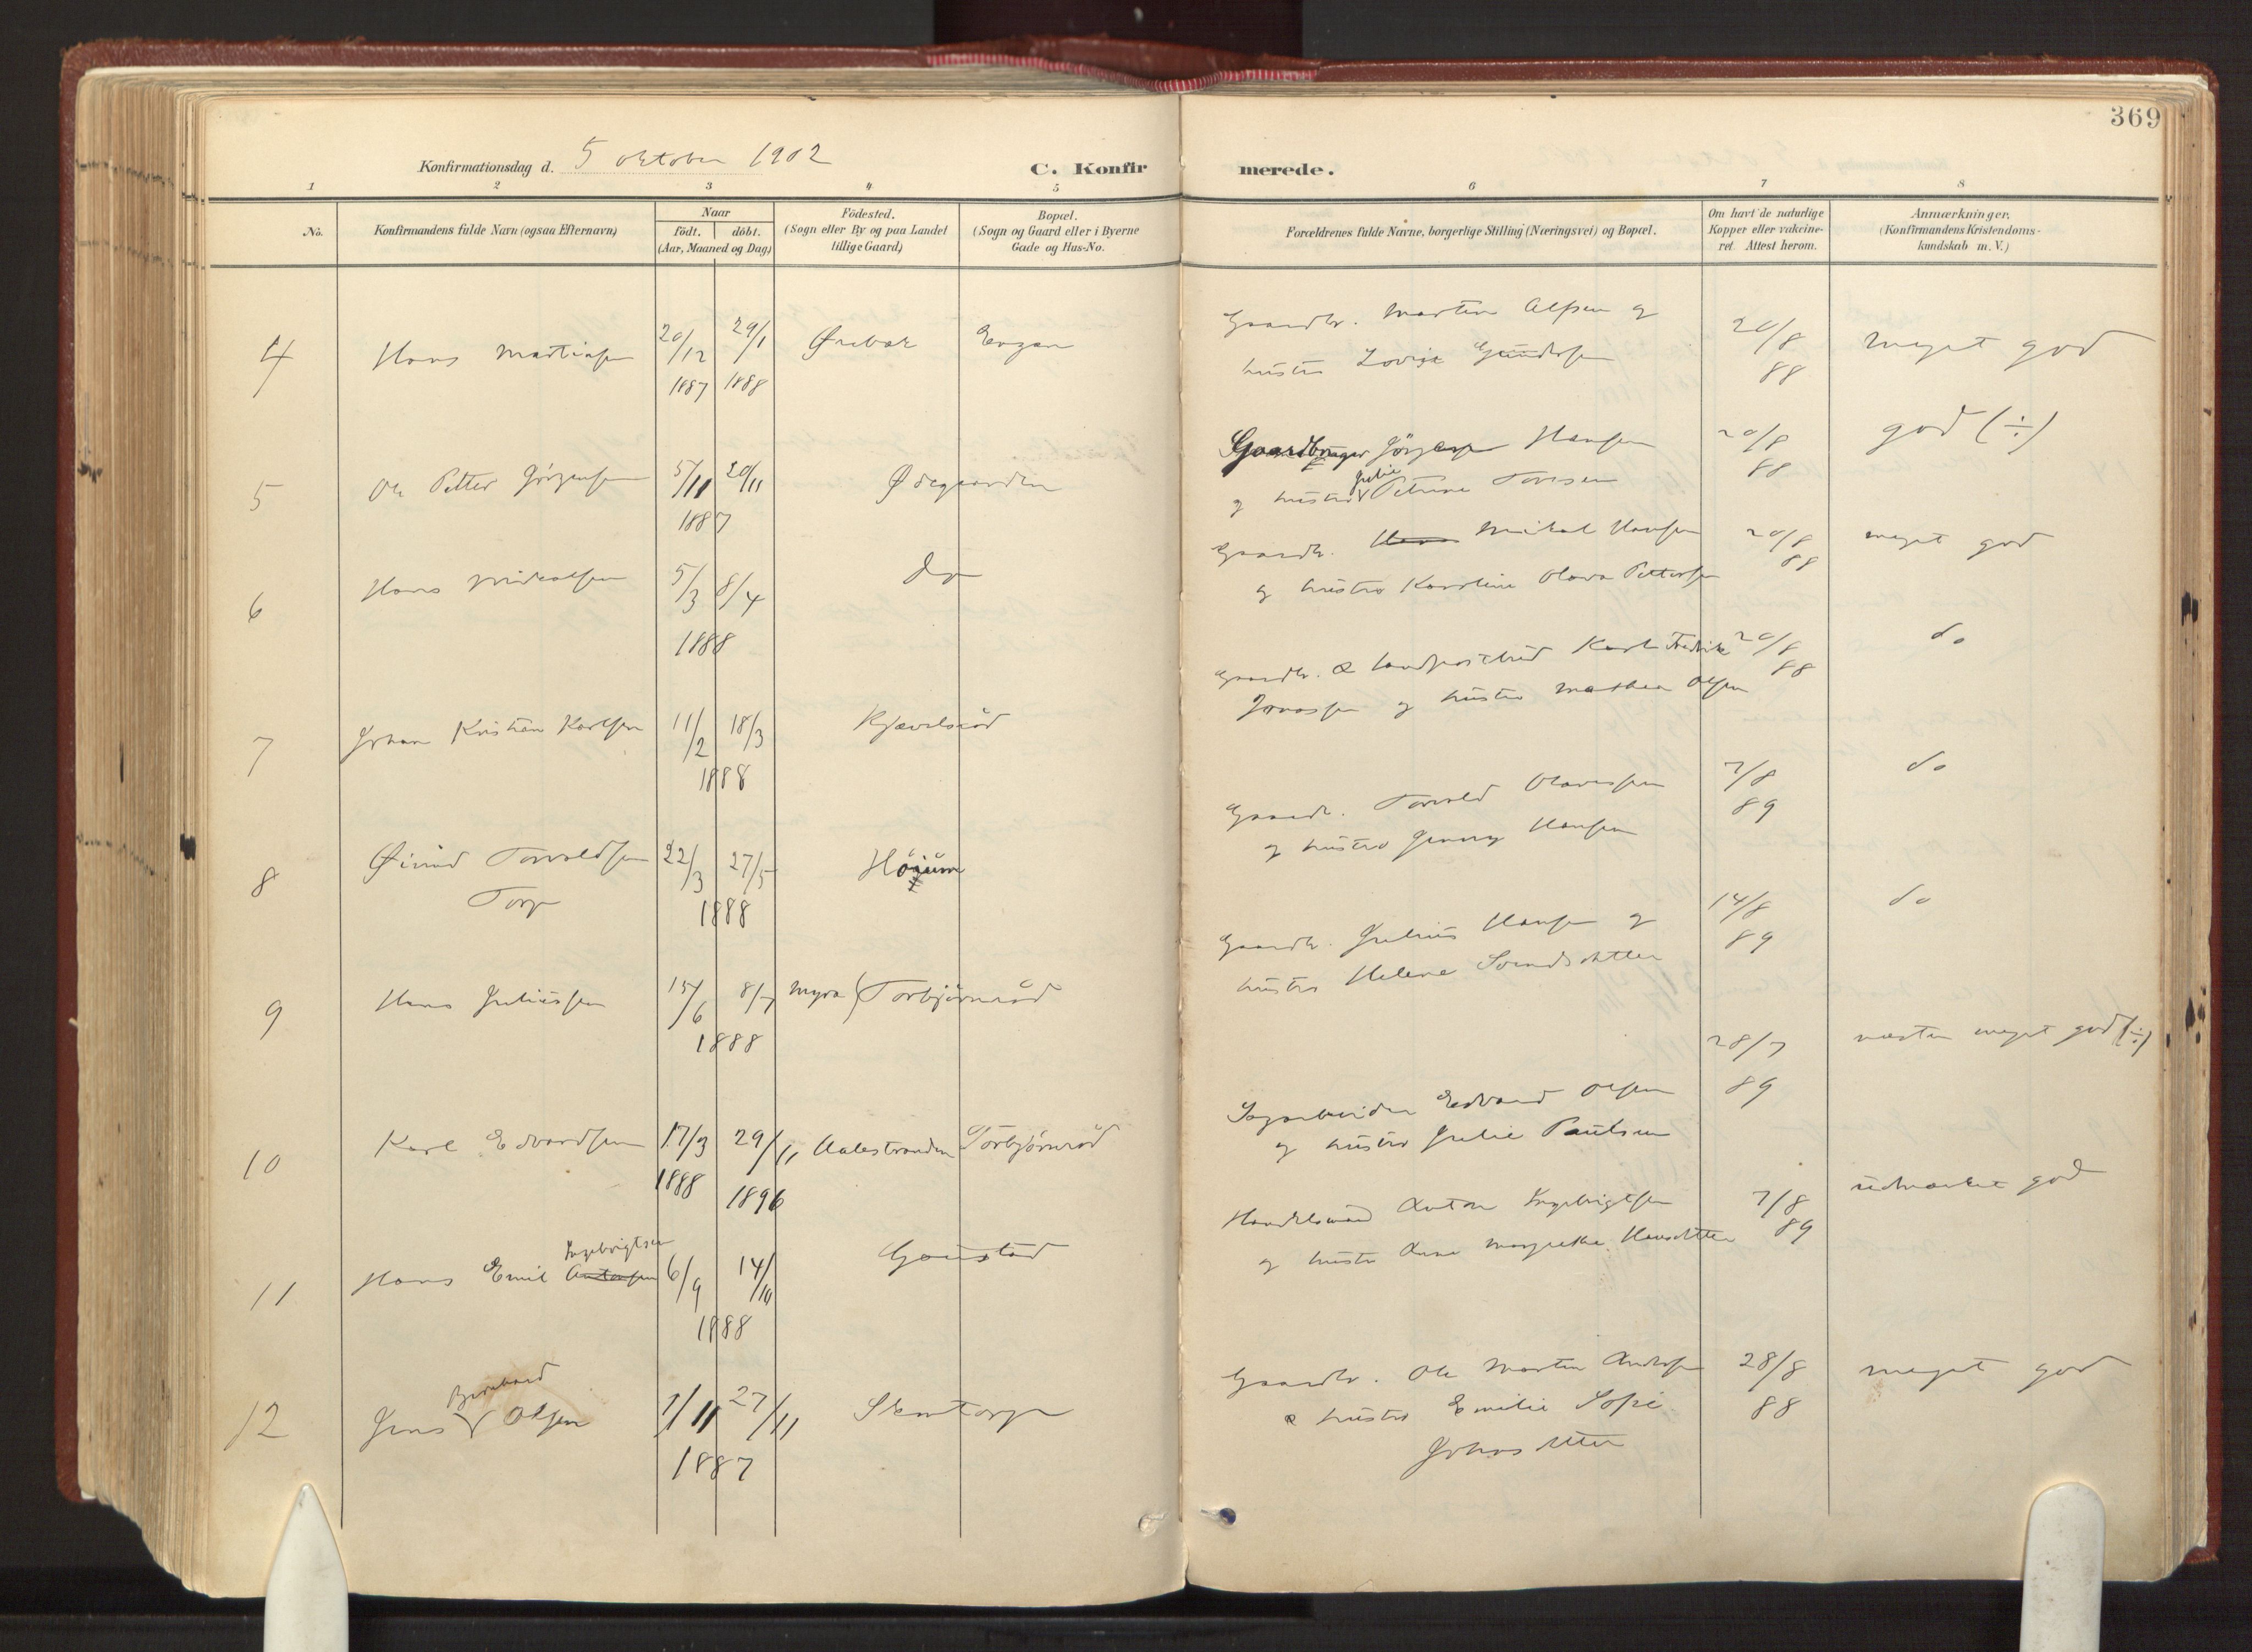 369
Konfirmationsdag d. 5 oktober 1902
C. Konfirmerede.
1 2 3 4 5 6 7 8
No.
Konfirmandens fulde Navn (ogsaa Efternavn)
Naar
födt. döbt.
(Aar, Maaned og Dag)
Födested.
(Sogn eller By og paa Landet
tillige Gaard)
Bopæl.
(Sogn og Gaard eller i Byerne
Gade og Hus-No.
Forældrenes fulde Navne, borgerlige Stilling (Næringsvei) og Bopæl.
Om havt de naturlige
Kopper eller vakcine-
ret. Attest herom.
Anmærkninger.
(Konfirmandens Kristendoms-
kundskab m. V.)
4 Hans Martinsen 20/12 1887 29/1 1888
Gaardbr. Martin Olsen og
hustru Lovise
20/8 88 meget god
5 Ole Petter Jörgensen 5/11 20/11 1887 Ødegaarden
Gaardbruger Jörgen Hansen
og hustru Julie Petrine
20/8 88 god (÷)
6 Hans Mikalsen 5/3 8/4 1888 do
Gaardbr. Mikal Hansen
og hustru Karoline Olava Pettersen
20/8 88 meget god
7 Johan Kristian Karlsen 11/2 18/3 1888
Gaardbr. & Landpostbud Karl Fredrik
Jonassen og hustru Mathea Olsen
20/8 88 do
8 Øivind Torvaldsen
Torp
22/3 27/5 1888
Gaardbr. Torvald Olavessen
og hustru Jenny Hansen
7/8 89 do
9 Hans Juliussen 15/6 8/7 1888 Myra Torbjörnröd
Gaardbr. Julius Hansen og
hustru Helene
14/8 89 do
10 Karl Edvardsen 17/3 1888 29/11 1896 Aalestranden Torbjörnröd
Sagarbeider Edvard Olsen
og hustru Julie Paulsen
28/7 89 næsten meget god (÷)
11 Hans Emil Antonsen Ingebrigtsen 6/9 14/10 1888
Handelsmand Anton Ingebrigtsen
og hustru Anne Margrethe Hansdtter
7/8 89 udmærket god
12 Jens Bernhard Olsen 1/11 27/11 1887 Skantorp
Gaardbr. Ole Martin
& hustru Emilie Sofie
28/8 88 meget god